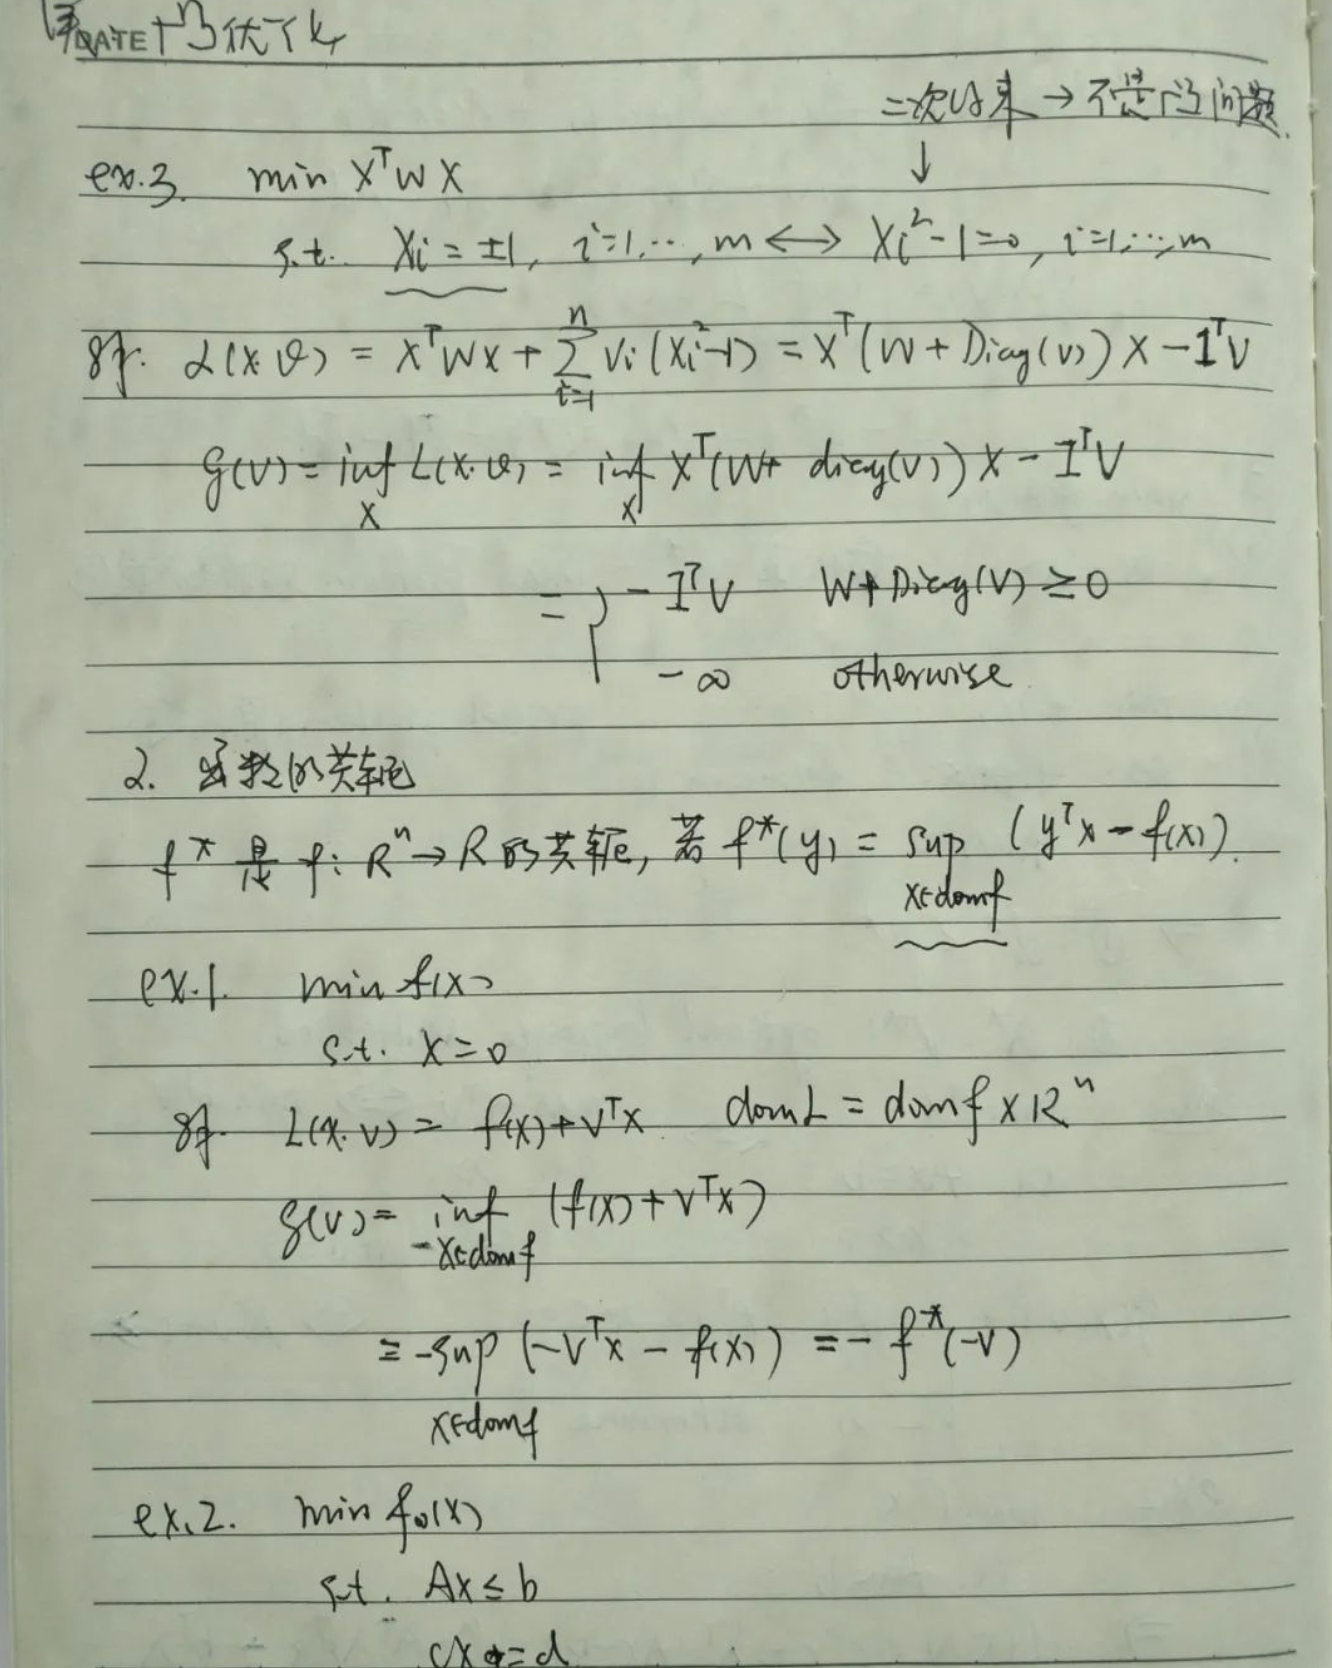 DATE 凸优化
二次约束 → 不是凸问题.
↓
ex.3. min X^T W X
s.t. Xi = ±1, i=1,…,m ⟷ Xi^2-1=0, i=1,…,m
解. L(x.v) = X^T W x + Σ_{i=1}^{n} Vi (Xi^2-1) = X^T (W + Diag(v)) X - 1^T V
g(v) = inf_X L(x.v) = inf_X X^T (W+ diag(v)) X - 1^T V
= { -1^T V W+Diag(V) ≥ 0
-∞ otherwise
2. 函数的共轭
f* 是 f: R^n → R 的共轭, 若 f*(y) = sup_{x∈domf} (y^T x - f(x)).
ex.1. min f(x)
s.t. X=0
解. L(x.v) = f(x)+V^T X domL = domf × R^n
g(v) = inf_{-x∈domf} (f(x)+V^T X)
= -sup_{x∈domf} (-V^T x - f(x)) = - f*(-V)
ex.2. min f0(x)
s.t. AX ≤ b
CX = d